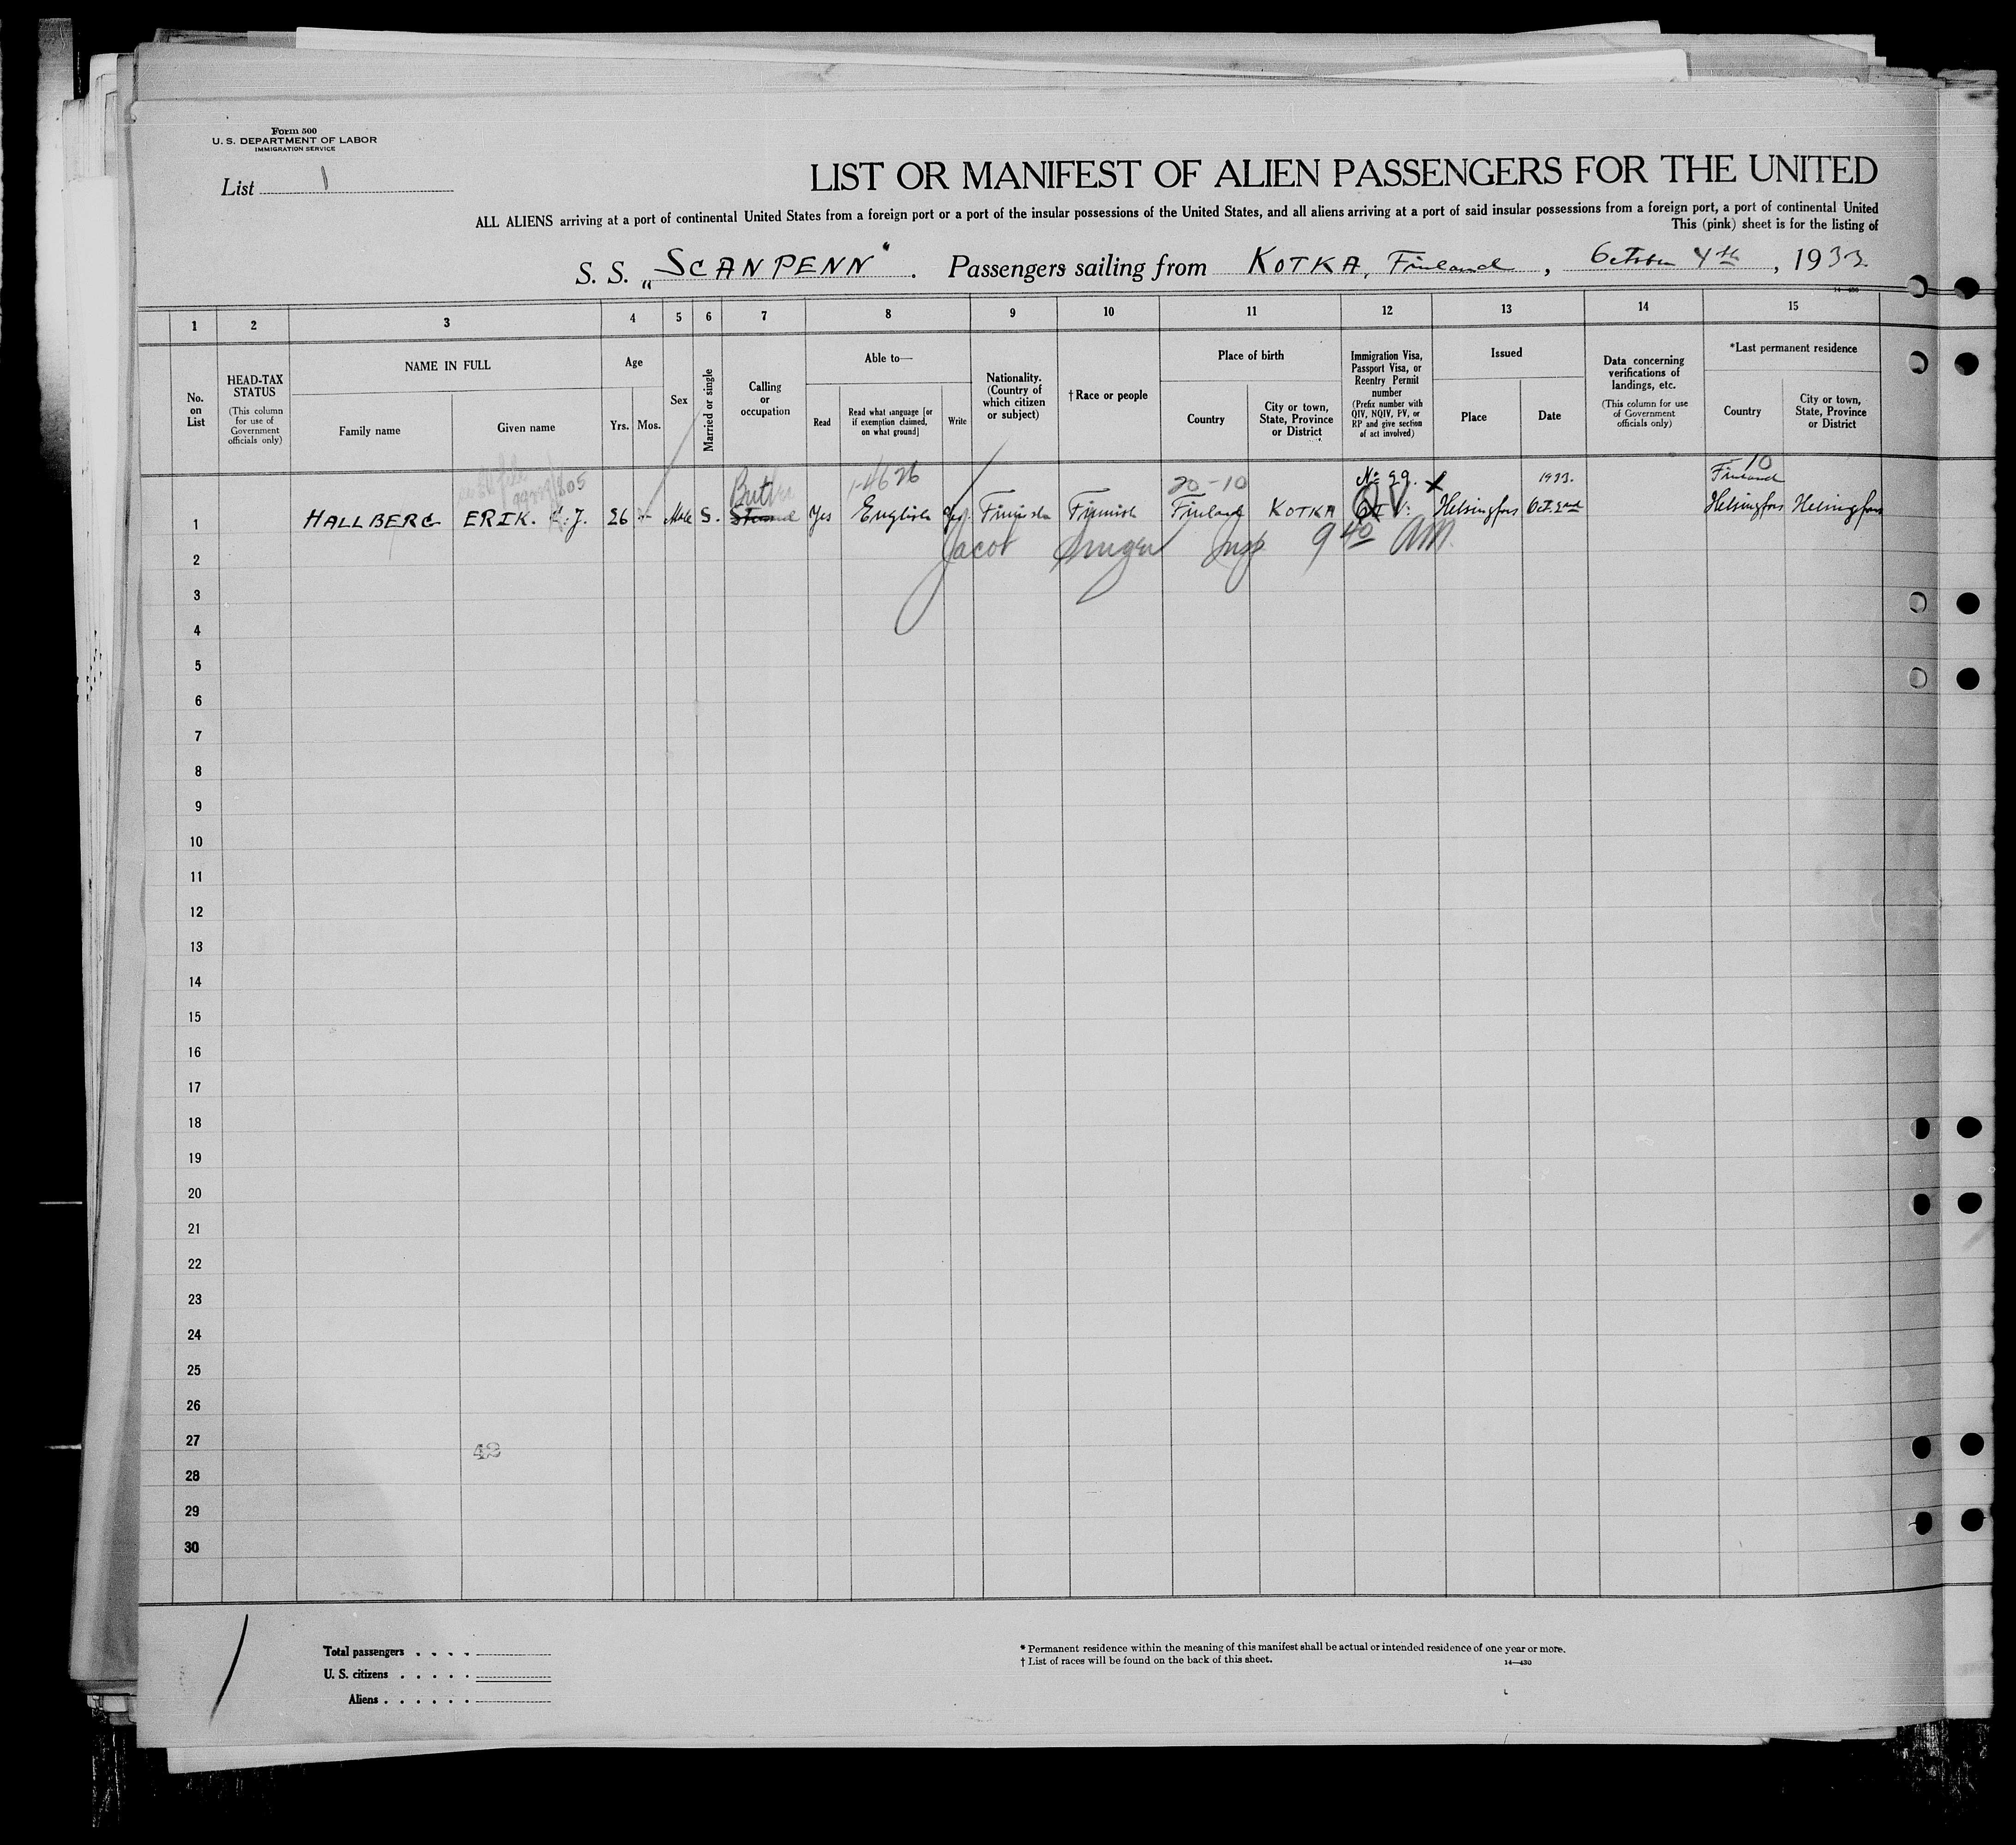 Form 500
U. S. DEPARTMENT OF LABOR
IMMIGRATION SERVICE
List 1
LIST OR MANIFEST OF ALIEN PASSENGERS FOR THE UNITED
ALL ALIENS arriving at a port of continental United States from a foreign port or a port of the insular possessions of the United States, and all aliens arriving at a port of said insular possessions from a foreign port, a port of continental United
This (pink) sheet is for the listing of
S. S. „SCANPENN". Passengers sailing from KOTKA, Finland, October 4th, 1933.
1 2 3 4 5 6 7 8 9 10 11 12 13 14 15
No. on List
HEAD-TAX STATUS
(This column for use of Government officials only)
NAME IN FULL
Family name
Given name
Age
Yrs.
Mos.
Sex
Married or single
Calling or occupation
Able to—
Read
Read what language [or if exemption claimed, on what ground]
Write
Nationality. (Country of which citizen or subject)
† Race or people
Place of birth
Country
City or town, State, Province or District
Immigration Visa, Passport Visa, or Reentry Permit number
(Prefix number with QIV, NQIV, PV, or RP and give section of act involved)
Issued
Place
Date
Data concerning verifications of landings, etc.
(This column for use of Government officials only)
*Last permanent residence
Country
City or town, State, Province or District
20-10 № 29. 1933. 10
Finland
1 HALLBERG ERIK. J. 26 Male S. Yes English Yes Finnish Finnish Finland KOTKA QIV: Helsingfors Oct. 2nd Helsingfors Helsingfors
Jacob Insp 9 40 AM.
2
3
4
5
6
7
8
9
10
11
12
13
14
15
16
17
18
19
20
21
22
23
24
25
26
27
42
28
29
30
Total passengers
U. S. citizens
Aliens
* Permanent residence within the meaning of this manifest shall be actual or intended residence of one year or more.
† List of races will be found on the back of this sheet.
14—430